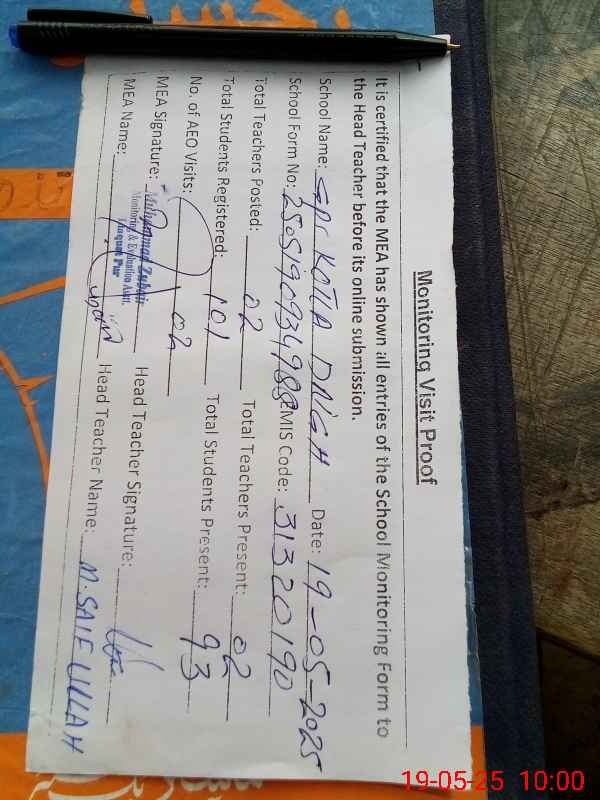 Monitoring Visit Proof
It is certified that the MEA has shown all entries of the School Monitoring Form to
the Head Teacher before its online submission.
School Name: GPS KOTLA Date: 19-05-2025
School Form No: EMIS Code: 31320190
Total Teachers Posted: 02 Total Teachers Present: 02
Total Students Registered: 101 Total Students Present: 93
No. of AEO Visits: 02
MEA Signature: Head Teacher Signature:
Muhammad Zubair
Monitoring & Evaluation Asstt.
Liaquat Pur
MEA Name: Head Teacher Name: M. SAIF ULLAH
19-05-25 10:00